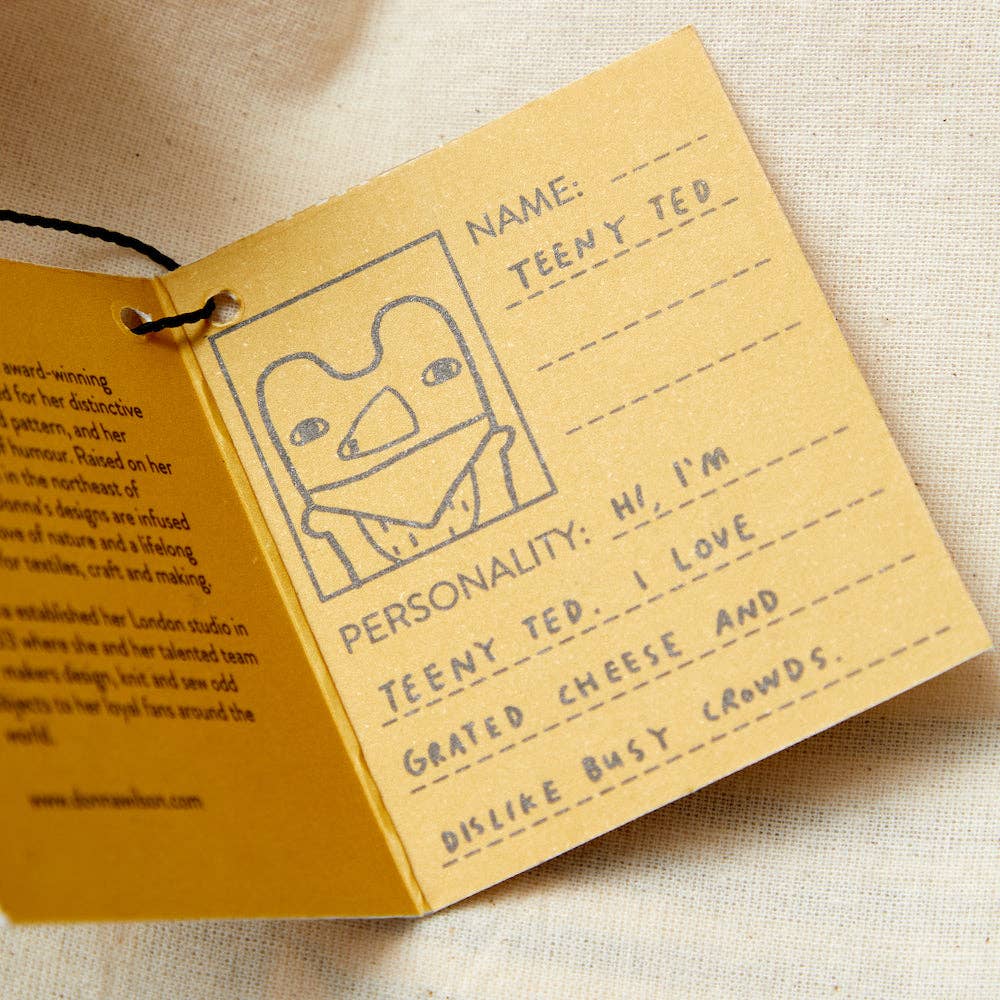 award-winning
for her distinctive
pattern, and her
humour. Raised on her
in the northeast of
Donna's designs are infused
love of nature and a lifelong
for textiles, craft and making.
established her London studio in
where she and her talented team
makers design, knit and sew odd
objects to her loyal fans around the
world.
www.donnawilson.com
NAME:
TEENY TED
PERSONALITY: HI, I'M
TEENY TED. I LOVE
GRATED CHEESE AND
DISLIKE BUSY CROWDS.